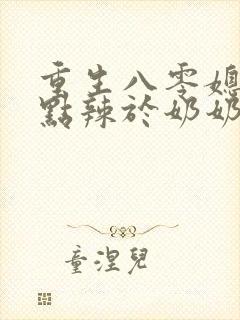 重生八零媳
點辣於奶奶
童涅兒